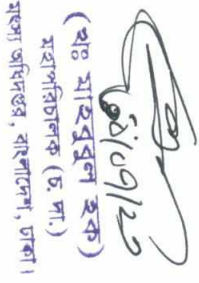 (খঃ মাহবুবুল হক)
মহাপরিচালক (চ. দা.)
মৎস্য অধিদপ্তর, বাংলাদেশ, ঢাকা।